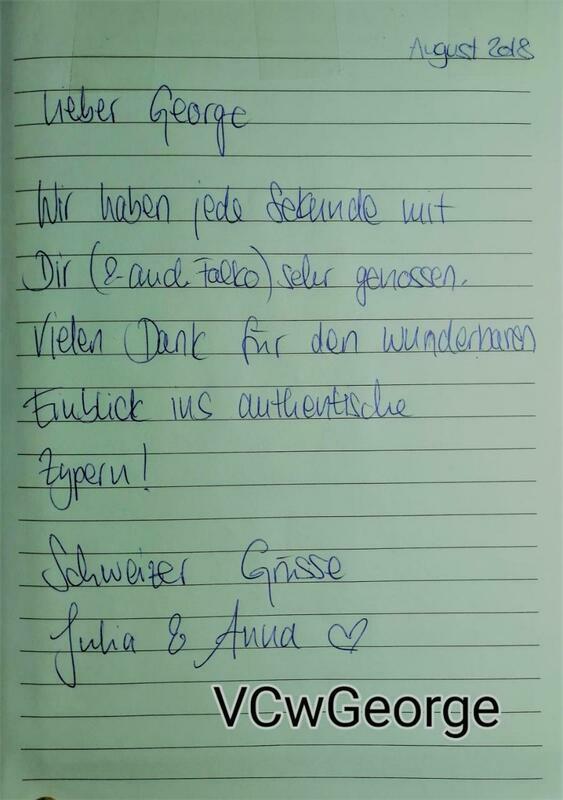 August 2018
Lieber George
Wir haben jede Sekunde mit
Dir (& auch Falko) sehr genossen.
Vielen Dank für den wunderbaren
Einblick ins authentische
Zypern!
Schweizer Grüsse
Julia & Anna ♡
VCwGeorge